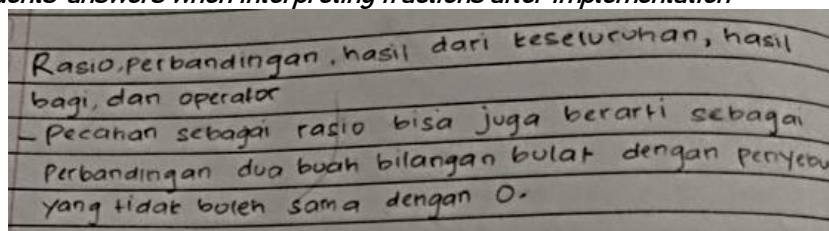 answers when interpreting fractions after implementation
Rasio, perbandingan, hasil dari keseluruhan, hasil
bagi, dan operator
- Pecahan sebagai rasio bisa juga berarti sebagai
perbandingan dua buah bilangan bulat dengan penyebu
yang tidak boleh sama dengan 0.